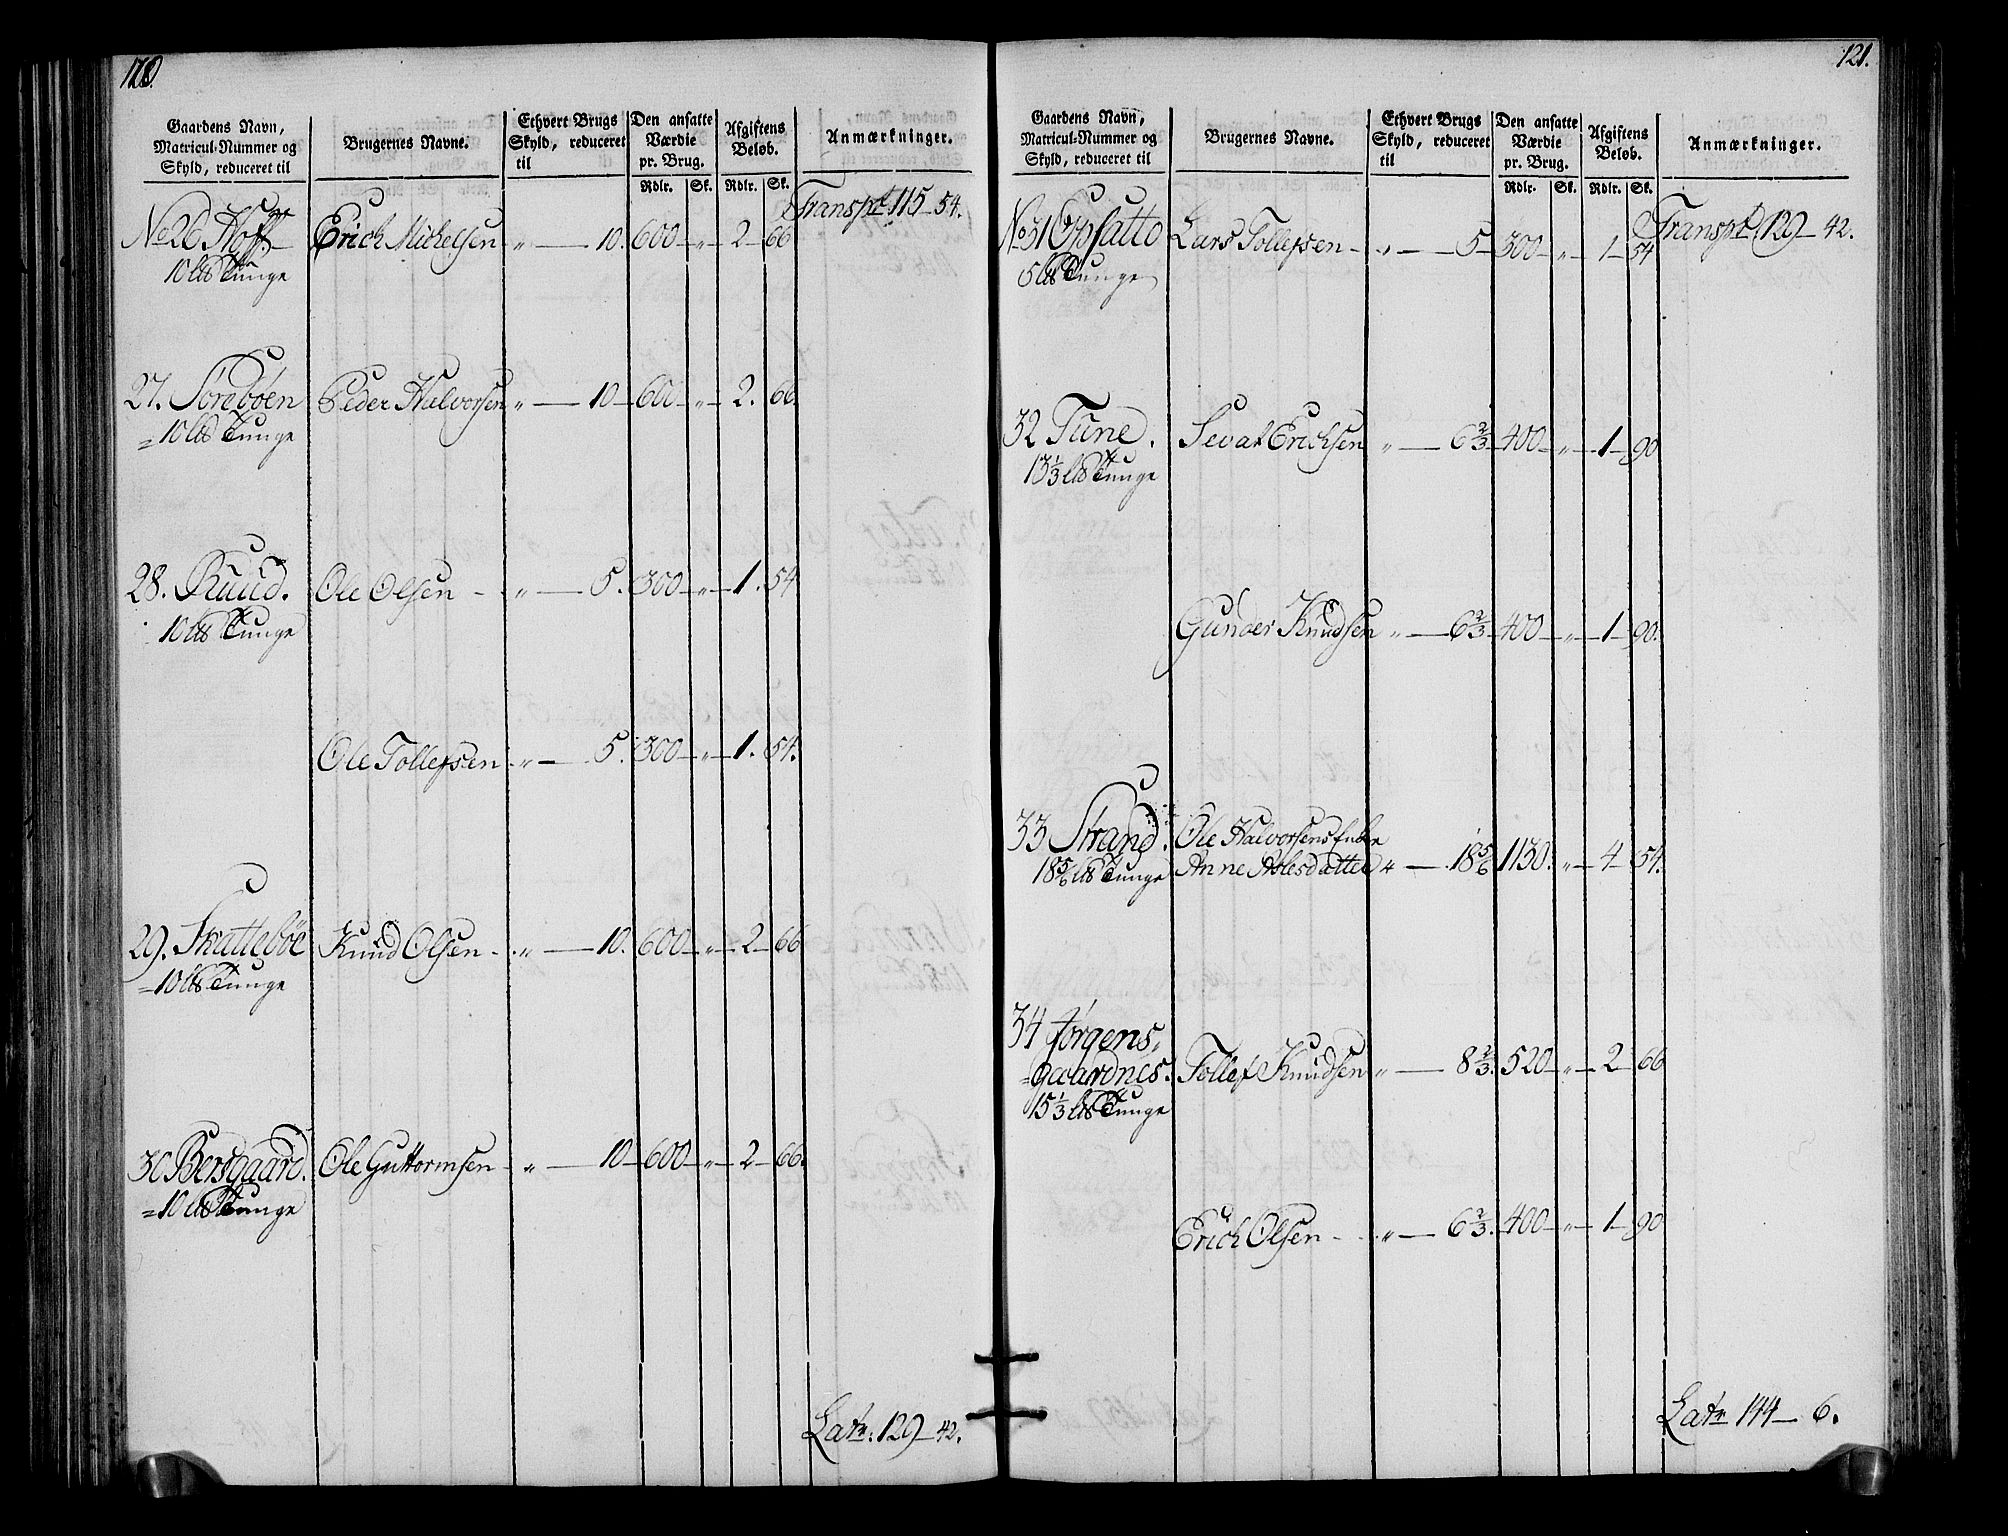 120.
Gaardens Navn, Matricul-Nummer og Skyld, reduceret til
Brugernes Navne.
Ethvert Brugs Skyld, reduceret til
Den ansatte Værdie pr. Brug.
Afgiftens Beløb.
Anmærkninger.
Rdlr. Sk. Rdlr. Sk.
Transpt 115-54.
No 26 Hoff. Erich Michelsen „ — 10. 600 — „ — 2 — 66
10 lb Tunge
27. Sørebøen Peder Halvorsen „ — 10 — 600 — „ — 2. 66.
= 10 lb Tunge
28. Ruud. Ole Olsen - „ — 5. 300 — „ — 1. 54
10 lb Tunge
Ole Tollefsen „ — 5. 300 — „ — 1. 54.
29. Skattebøe Knud Olsen - „ — 10. 600 — „ — 2 — 66
= 10 lb Tunge
30 Bersgaard. Ole Guttormsen „ — 10 — 600 — „ — 2 — 66.
= 10 lb Tunge
Latr: 129-42.
121.
Gaardens Navn, Matricul-Nummer og Skyld, reduceret til
Brugernes Navne.
Ethvert Brugs Skyld, reduceret til
Den ansatte Værdie pr. Brug.
Afgiftens Beløb.
Anmærkninger.
Rdlr. Sk. Rdlr. Sk.
Transpt 129-42.
No 31 Opsatto Lars Tollefsen - „ — 5 — 300 — „ — 1 — 54
5 lb Tunge
32 Tune. Sevat Erichsen „ — 6 2/3 — 400 — „ — 1 — 90
13 1/3 lb Tunge
Gunder Knudsen „ — 6 2/3 — 400 — „ — 1 — 90.
33 Strand. Ole Halvorsens Enke
18 5/6 lb Tunge Anne Aslesdatter „ — 18 5/6 1130. „ — 4 — 54.
34 Jørgens,
=gaardnes. Tollef Knudsen „ — 8 2/3. 520 — „ — 2 — 66
15 1/3 lb Tunge
Erich Olsen - „ — 6 2/3. 400 — „ — 1 — 90
Latr 144-6.